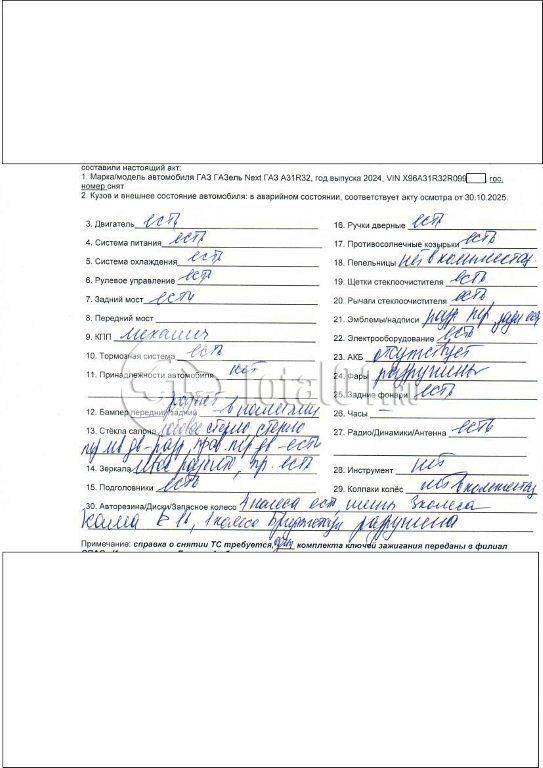 составили настоящий акт:
1. Марка/модель автомобиля ГАЗ ГАЗель Next ГАЗ A31R32, год выпуска 2024, VIN X96A31R32R099 , гос.
номер снят
2. Кузов и внешнее состояние автомобиля: в аварийном состоянии, соответствует акту осмотра от 30.10.2025.
3. Двигатель есть
4. Система питания есть
5. Система охлаждения есть
6. Рулевое управление есть
7. Задний мост есть
8. Передний мост
9. КПП механич
10. Тормозная система есть
11. Принадлежности автомобиля нет
12. Бампер передний/задний
13. Стёкла салона лобовое стекло
14. Зеркала пр. есть
15. Подголовники есть
16. Ручки дверные есть
17. Противосолнечные козырьки есть
18. Пепельницы нет в комплектац
19. Щетки стеклоочистителя есть
20. Рычаги стеклоочистителя есть
21. Эмблемы/надписи
22. Электрооборудование есть
23. АКБ отсутствует
24. Фары разрушены
25. Задние фонари есть
26. Часы —
27. Радио/Динамики/Антенна есть
28. Инструмент нет
29. Колпаки колёс нет в комплектац
30. Авторезина/Диски/Запасное колесо 4 колеса есть шины
Кама R 16, 1 колесо разрушена
Примечание: справка о снятии ТС требуется, один комплекта ключей зажигания переданы в филиал
Total01.RU